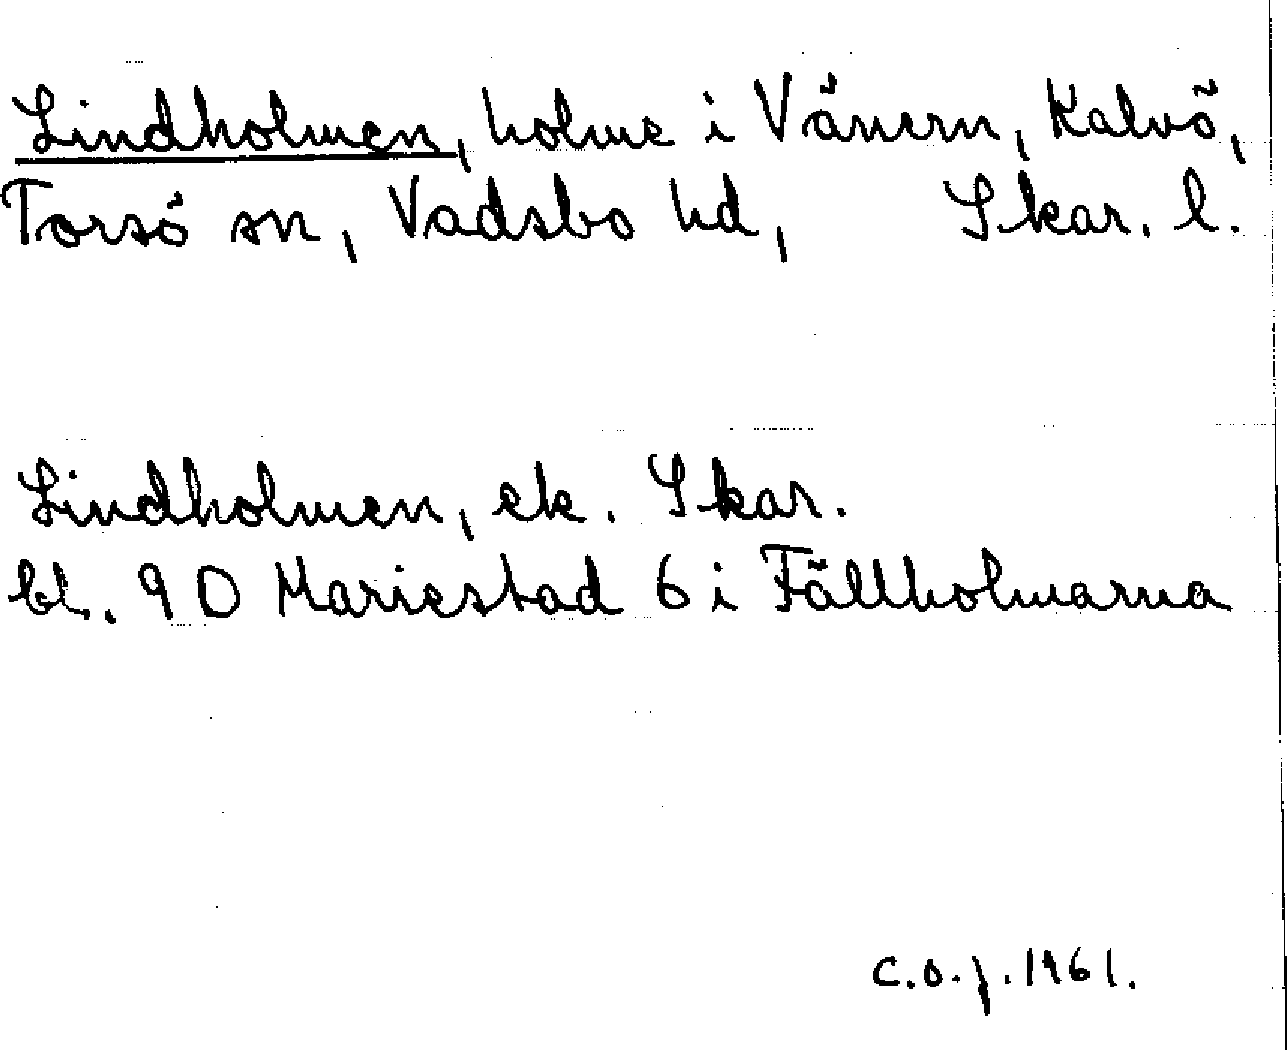 Lindholmen, holme i Vänern, Kalvö,
Torsö sn, Vadsbo hd, Skar. l.
Lindholmen, ek. Skar.
bl. 9 D Mariestad 6 i Fällholmarna
C.O.J. 1961.